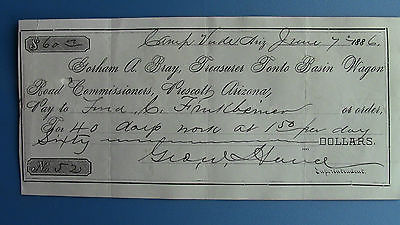 $60 Camp Verde Ariz June 7th 1886.
Gorham A. Bray, Treasurer Tonto Basin Wagon
Road Commissioners, Prescott Arizona,
Pay to Fred C. or order,
For 40 days work at 1 50 per day
Sixty DOLLARS.
No. 52 Geo. W. Hance
Superintendent.